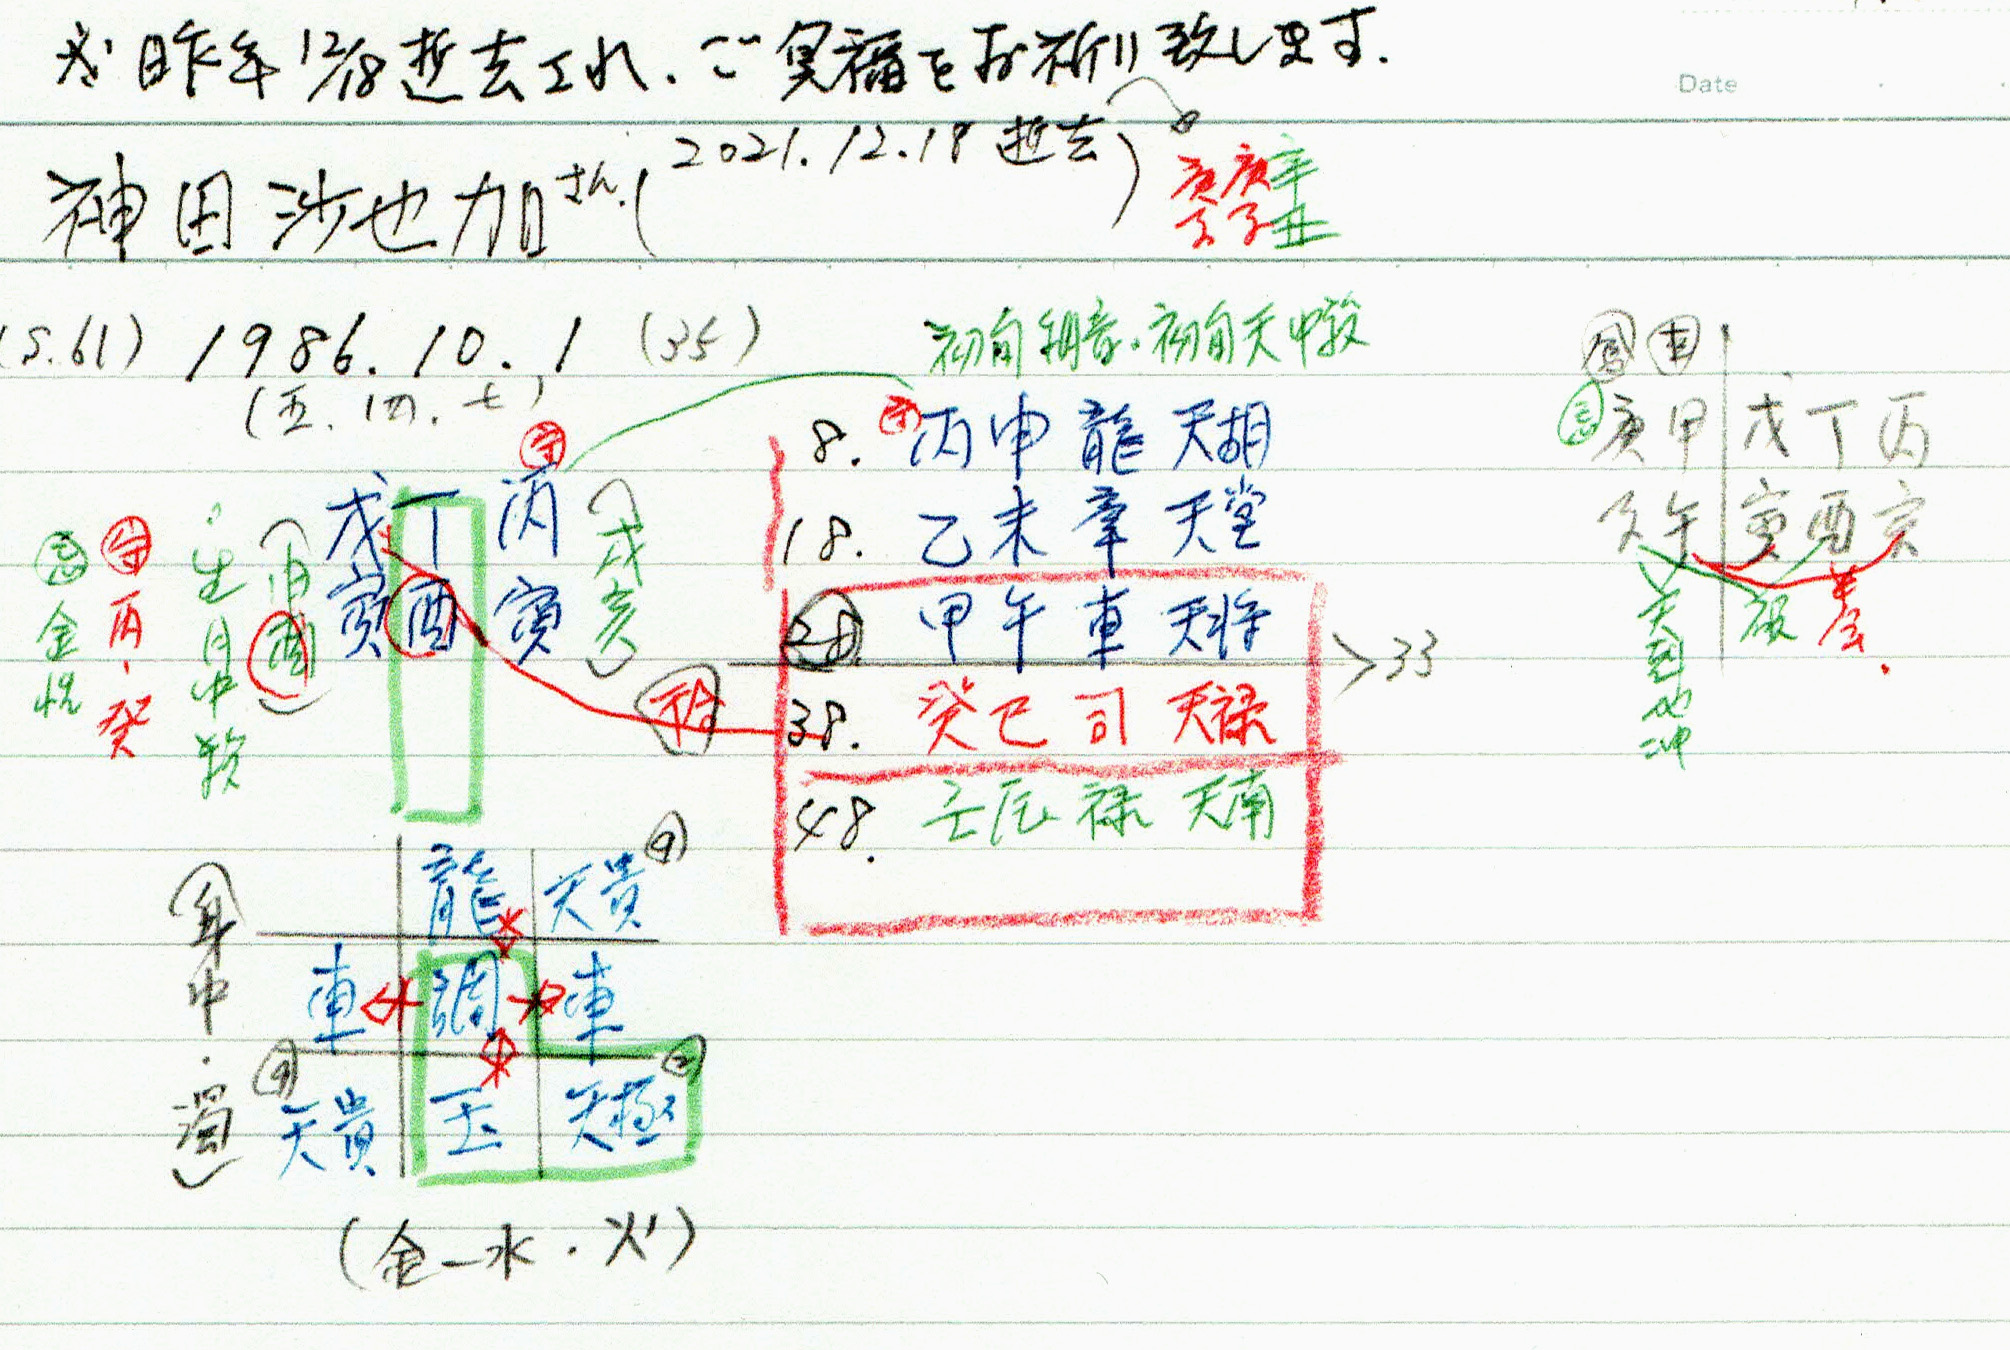 昨年12/18逝去され、ご冥福をお祈り致します.
Date
神田沙也加さん.(2021.12.18 逝去)
庚庚辛
子子丑
(S.61) 1986.10.1 (35)
(五.四.七)
初旬天中殺
戊丁丙
寅酉寅
(戌亥)
忌 金性
守 丙・癸
生月中殺
8. 守 丙申 龍 天胡
18. 乙未 牽 天堂
28. 甲午 車 天将
>33
38. 癸巳 司 天禄
48. 壬辰 禄 天南
忌 庚甲 戊丁丙
子午 寅酉亥
天剋地冲
破
龍 天貴 9
車 調 車
9 天貴 玉 天極 2
(身中・
(金-水・火)